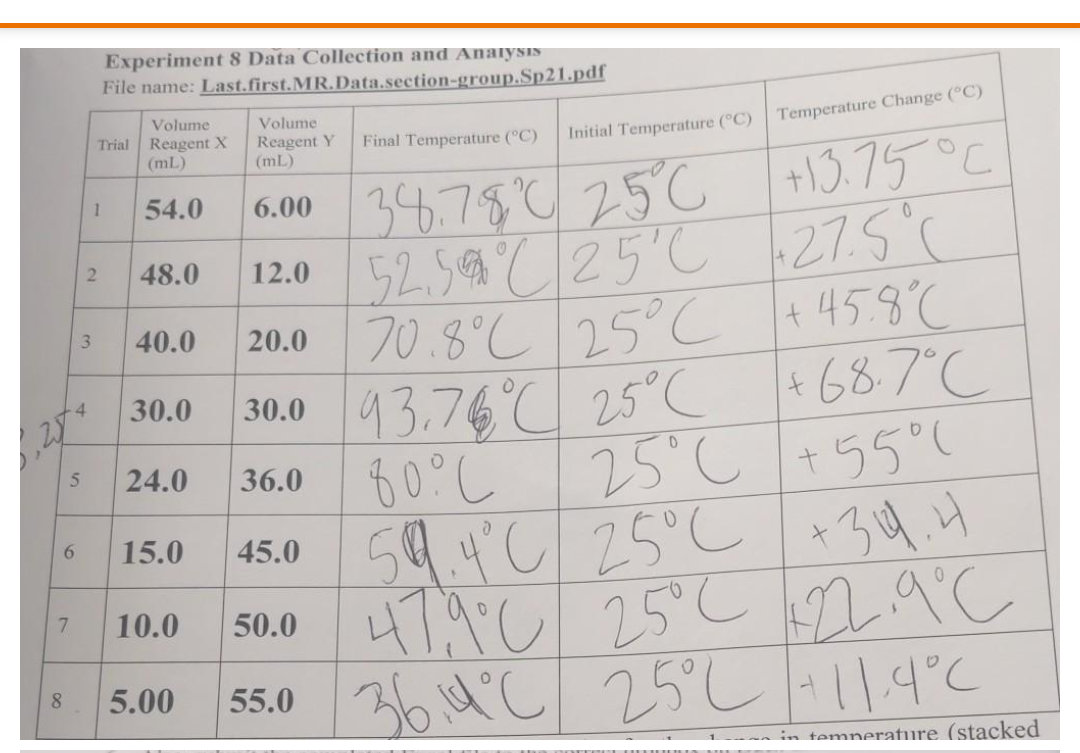 Experiment 8 Data Collection and Analysis
File name: Last.first.MR.Data.section-group.Sp21.pdf
Trial Volume Reagent X (mL) Volume Reagent Y (mL) Final Temperature (°C) Initial Temperature (°C) Temperature Change (°C)
1 54.0 6.00 38.78°C 25°C +13.75°C
2 48.0 12.0 52.5°C 25°C +27.5°C
3 40.0 20.0 70.8°C 25°C +45.8°C
4 30.0 30.0 93.7°C 25°C +68.7°C
5 24.0 36.0 80°C 25°C +55°C
6 15.0 45.0 59.4°C 25°C +34.4
7 10.0 50.0 47.9°C 25°C +22.9°C
8 5.00 55.0 36.4°C 25°C +11.4°C
in temperature (stacked